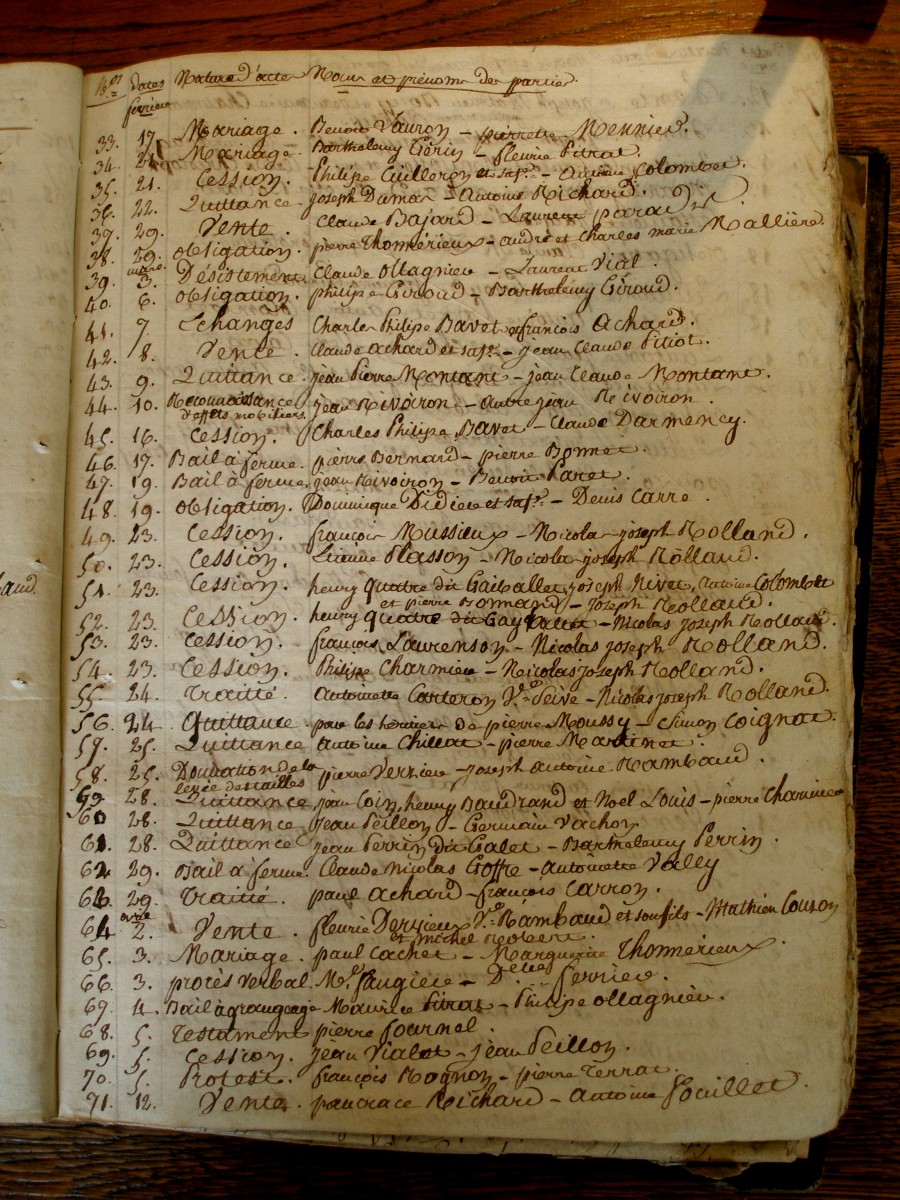 1807 dates Nature d'actes Noms et prénoms des parties
février
33. 17. Mariage. Benoit Vauron - pierrette Meunier.
34. 21. Mariage. Barthelemy Gérin - fleurie Pitrat.
35. 21. Cession. Philipe Cuilleron et sa fe. - Antoine Colombet
36. 22. Quittance. joseph Dumas - Antoine Richard.
37. 29. Vente. Claude Bajard - Laurent paradis.
38. 29. obligation. pierre Thomérieux - andré et Charles marie Mallière.
mars
39. 3. Désistement. Claude ollagnier - Laurent Vial.
40. 6. obligation. philipe Giroud - Barthelemy Giroud.
41. 7. Echanges Charles Philipe Bavet et françois Achard.
42. 8. Vente. Claude achard et sa fe. - jean Claude Pitiot.
43. 9. Quittance. jean Pierre Montant - jean Claude Montant.
44. 10. Reconnaissance jean Rivoiron - autre jean Rivoiron.
d'effets mobiliers.
45. 16. Cession. Charles Philipe Bavet - Claude Darmency.
46. 17. Bail à ferme. pierre Bernard - pierre Bonnet.
47. 19. Bail à ferme. jean Rivoiron - Benoit Paret.
48. 19. obligation. Dominique Didier et sa fe. - Denis Carre.
49. 23. Cession. françois Mussieux - Nicolas joseph Rolland.
50. 23. Cession. Etienne Plasson - Nicolas joseph Rolland.
51. 23. Cession. henry quatre dit Gaiballet, joseph Nivet, Antoine Colombet
et pierre Bonnand - joseph Rolland.
52. 23. Cession. henry quatre dit Gayballet - Nicolas joseph Rolland.
53. 23. Cession. françois Laurenson - Nicolas joseph Rolland.
54. 23. Cession. Philipe Charmier - Nicolas joseph Rolland.
55. 24. Traité. antoinette Carteron Ve. Seive - Nicolas joseph Rolland.
56. 24 Quittance. par les héritiers de pierre Moussy - Simon Coignat.
57. 25. Quittance antoine Chillat - pierre Martinet.
58. 25. Donnation de la pierre Verrier - joseph antoine Rambaud.
levée des tailles
59 28. Quittance, jean Coin, henry Baudrand et Noel Louis - pierre Charmier
60 28. Quittance jean Peillon - Germain Vachon
61. 28. Quittance jean Perrin dit Galet - Barthelemy Perrin.
62 29. Bail à ferme. Claude Nicolas Goffre - Antoinette Valley
63. 29. Traité. paul achard - françois Carron.
avril
64 2. Vente. fleurie Dervieux Ve. Rambaud et son fils - Mathieu Couson
et michel Robert.
65. 3. Mariage. paul Cachet - Marguerite Thomérieux.
66. 3. procès verbal. Mr. faugier - Delle. ferrier.
67. 4. Bail à grangeage Maurice Pitrat - Philipe ollagnier.
68. 5. Testament pierre fournel.
69. 5. Cession. jean Vialet - jean Peillon.
70. 5. Protest. françois Rognon - pierre Terrat.
71. 12. Vente. pancrace Richard - Antoine Souillet.